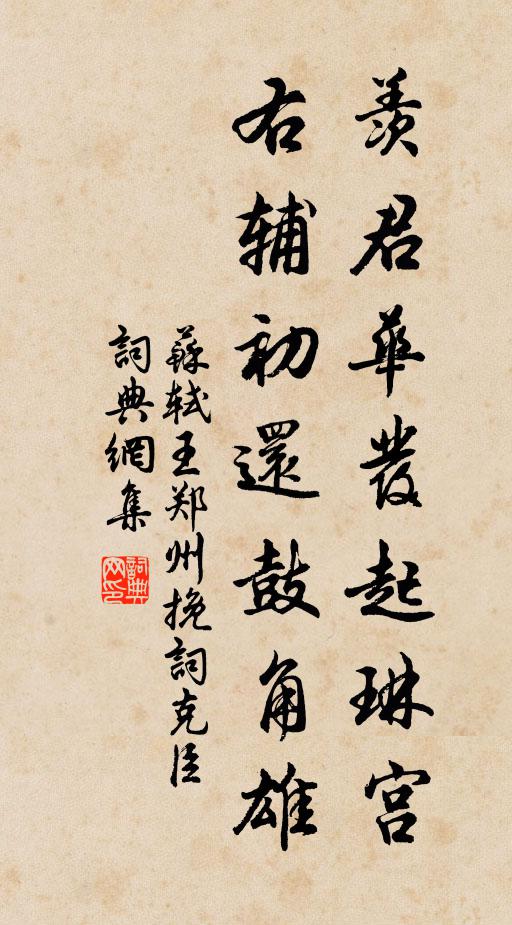 羡君華發起琳宫
右辅初還鼓角雄
蘇轼王郑州挽詞克臣
詞典網集
詞典网印